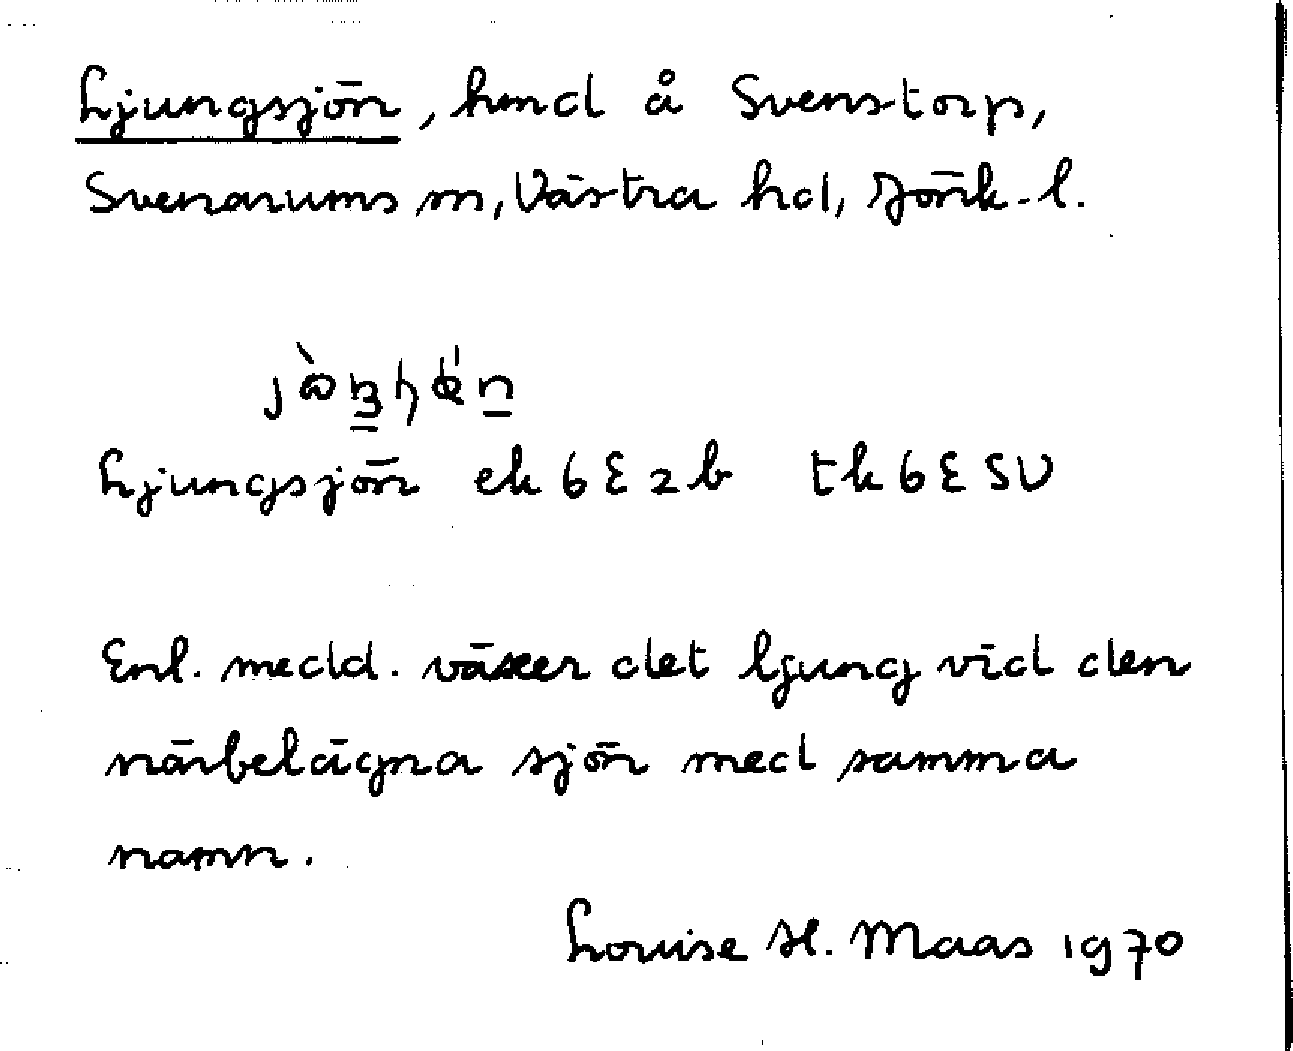 Ljungsjön, hmd å Svenstorp,
Svenarums sn, Västra hd, Jönk. l.
Ljungsjön ek 6E2b tk 6E SV
Enl. medd. växer det ljung vid den
närbelägna sjön med samma
namn.
Louise H. Maas 1970